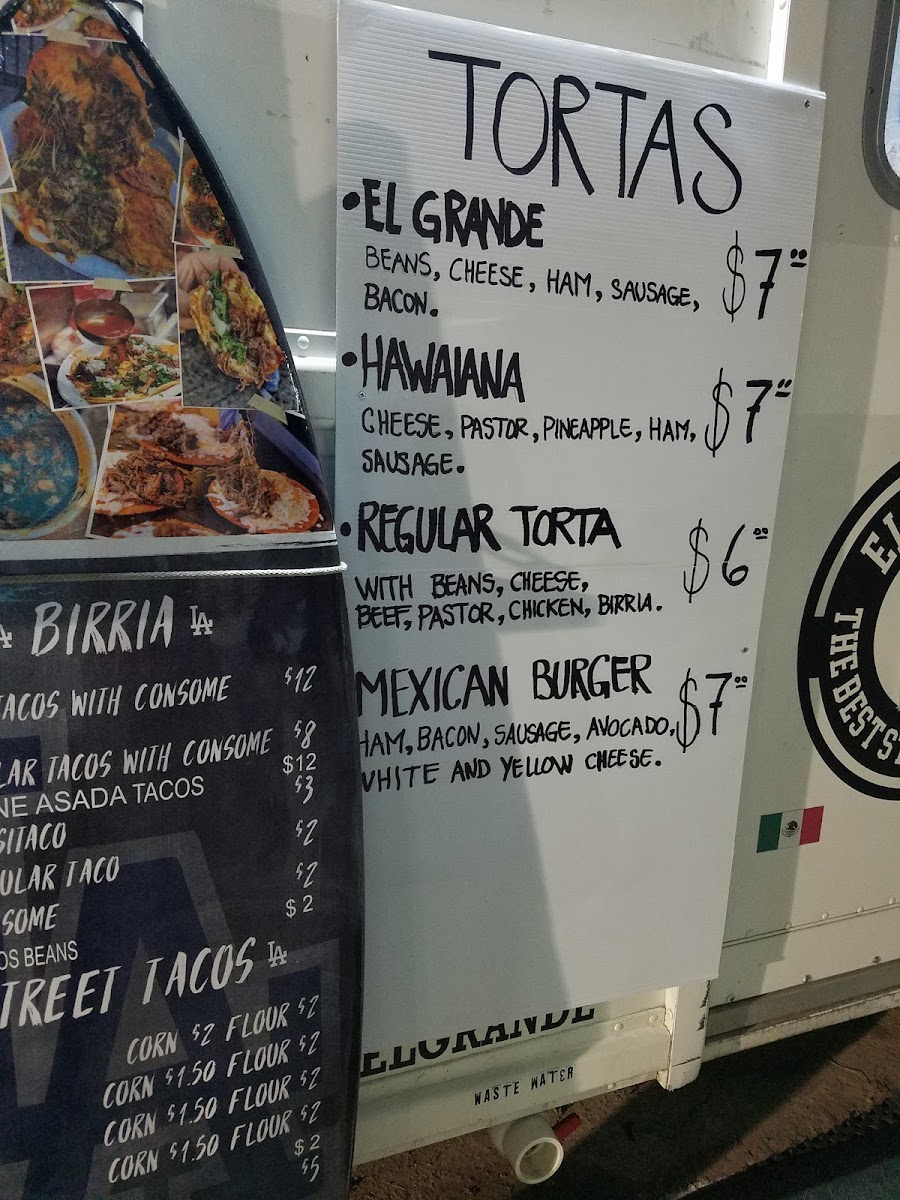 TORTAS
•EL GRANDE
BEANS, CHEESE, HAM, SAUSAGE,
BACON.
$7.00
•HAWAIANA
CHEESE, PASTOR, PINEAPPLE, HAM,
SAUSAGE.
$7.00
•REGULAR TORTA
WITH BEANS, CHEESE,
BEEF, PASTOR, CHICKEN, BIRRIA.
$6.00
MEXICAN BURGER
HAM, BACON, SAUSAGE, AVOCADO,
WHITE AND YELLOW CHEESE.
$7.00
LA BIRRIA LA
TACOS WITH CONSOME $12
LAR TACOS WITH CONSOME $8
NE ASADA TACOS $12
SITACO $3
ULAR TACO $2
SOME $2
OS BEANS $2
STREET TACOS LA
CORN $2 FLOUR $2
CORN $1.50 FLOUR $2
CORN $1.50 FLOUR $2
CORN $1.50 FLOUR $2
$2
$5
ELGRANDE
WASTE WATER
EL
THE BEST